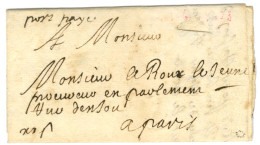 port payé
A Monsieur
Monsieur Le Roux le Jeune
procureur en parlement
Rue
a paris